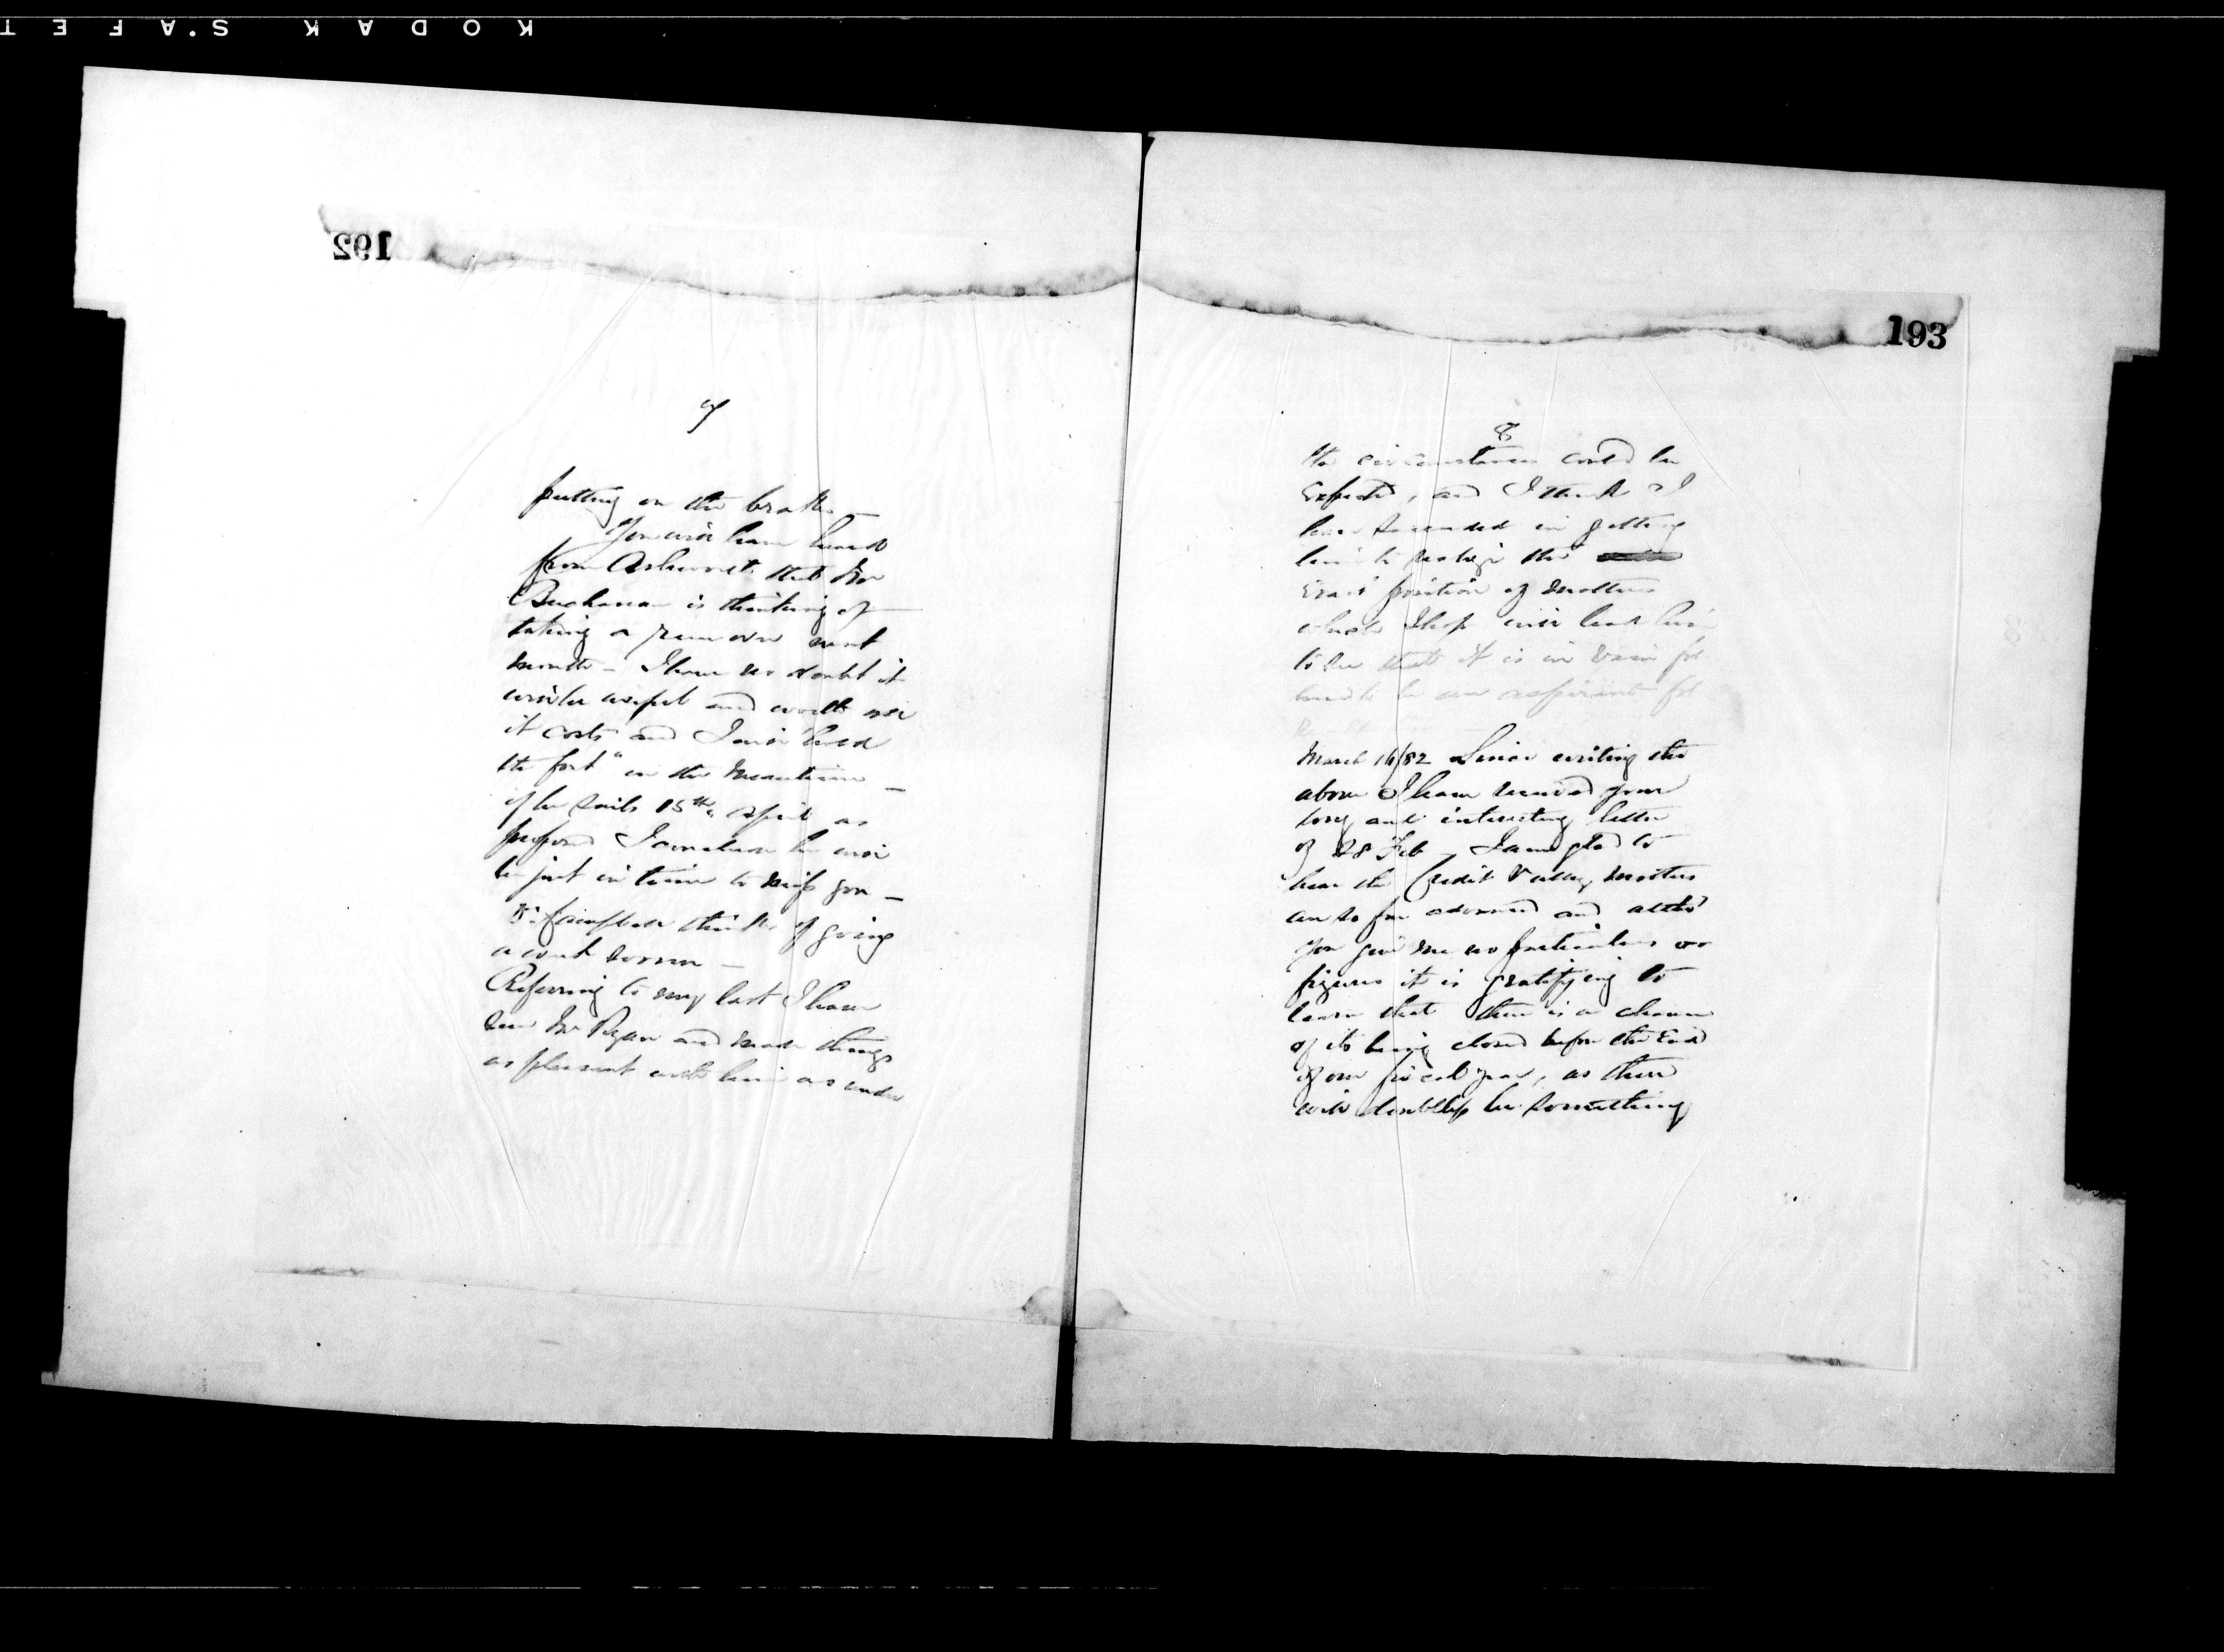 KODAK SAFET
192
7
putting on the brakes —
You will have heard
from Ashworth that Mr
Buchanan is thinking of
taking a run over next
month – I have no doubt it
will be useful and worth all
it costs and I will "hold
the fort" in the meantime —
if he sails 15th April as
proposed I conclude he will
be just in time to miss you —
Dr. Campbell thinks of going
a week sooner —
Referring to my last I have
seen Mr Ryan and made things
as pleasant with him as under
193
8
the circumstances could be
expected, and I think I
have succeeded in getting
him to realize the
exact position of matters
which I hope will lead him
to see that it is in vain for
him to be an aspirant for
March 16/82 Since writing the
above I have received your
long and interesting letter
of 28 Feb – I am glad to
hear the Credit Valley matters
are so far advanced and altho'
you give me no particulars or
figures it is gratifying to
learn that there is a chance
of its being closed before the End
of our fiscal year, as there
will doubtless be something